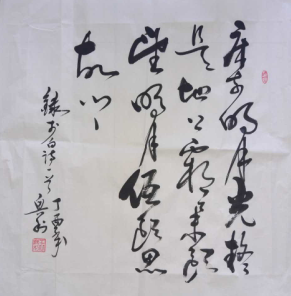 床前明月光疑
是地上霜举头
望明月低头思
故乡
录李白诗一首
丁酉年